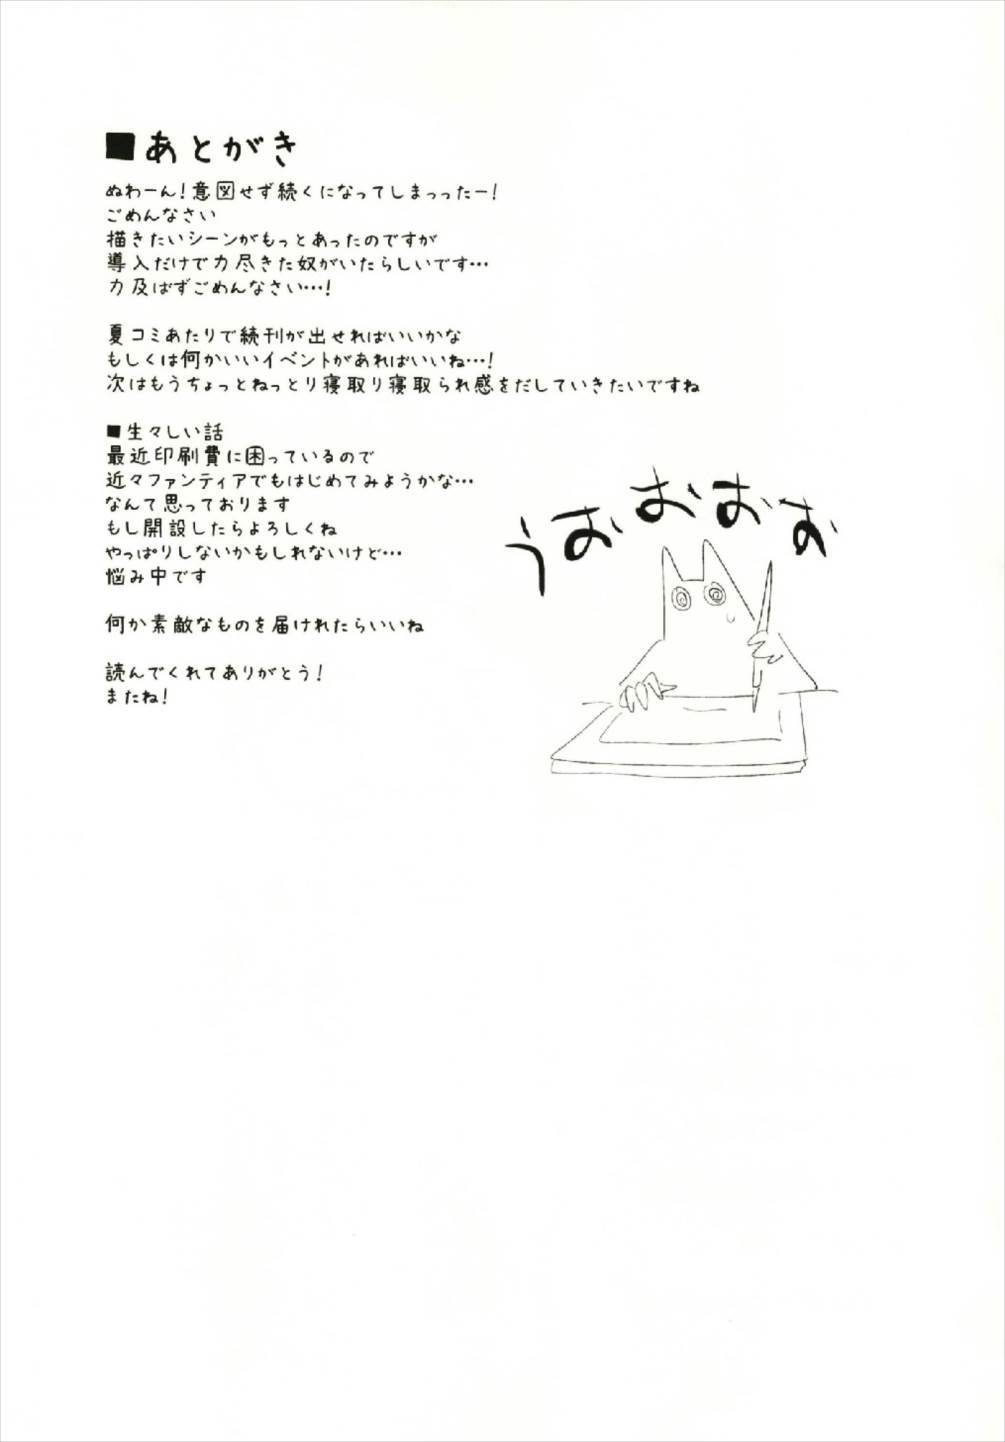 ■あとがき
ぬわーん!意図せず続くになってしまっったー!
ごめんなさい
描きたいシーンがもっとあったのですが
導入だけで力尽きた奴がいたらしいです…
力及ばずごめんなさい…!
夏コミあたりで続刊が出せればいいかな
もしくは何かいいイベントがあればいいね…!
次はもうちょっとねっとり寝取り寝取られ感をだしていきたいですね
■生々しい話
最近印刷費に困っているので
近々ファンティアでもはじめてみようかな…
なんて思っております
もし開設したらよろしくね
やっぱりしないかもしれないけど…
悩み中です
何か素敵なものを届けれたらいいね
読んでくれてありがとう!
またね!
うおおおお